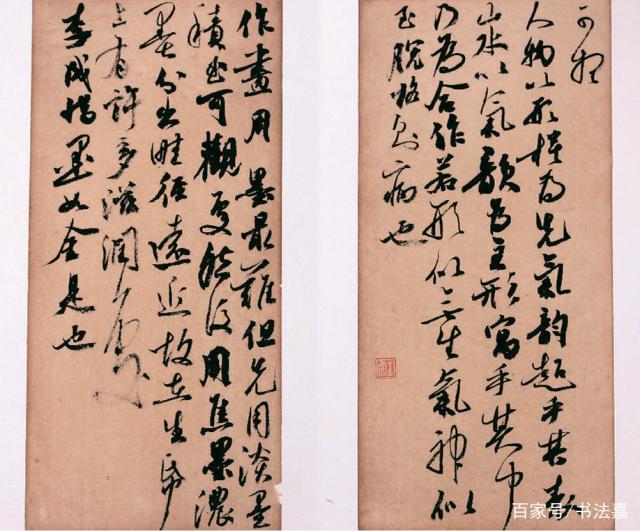 可想
人物以形模为先氣韵超乎其表
山水以氣韻为主形寓乎其中
乃為合作若形似無生氣神似
至脱格则病也
作畫用墨最難但先用淡墨
積至可觀處然後用焦墨濃
墨分出畦徑遠近故在生紙
上有許多滋潤處
李成惜墨如金是也
百家号/书法嘉